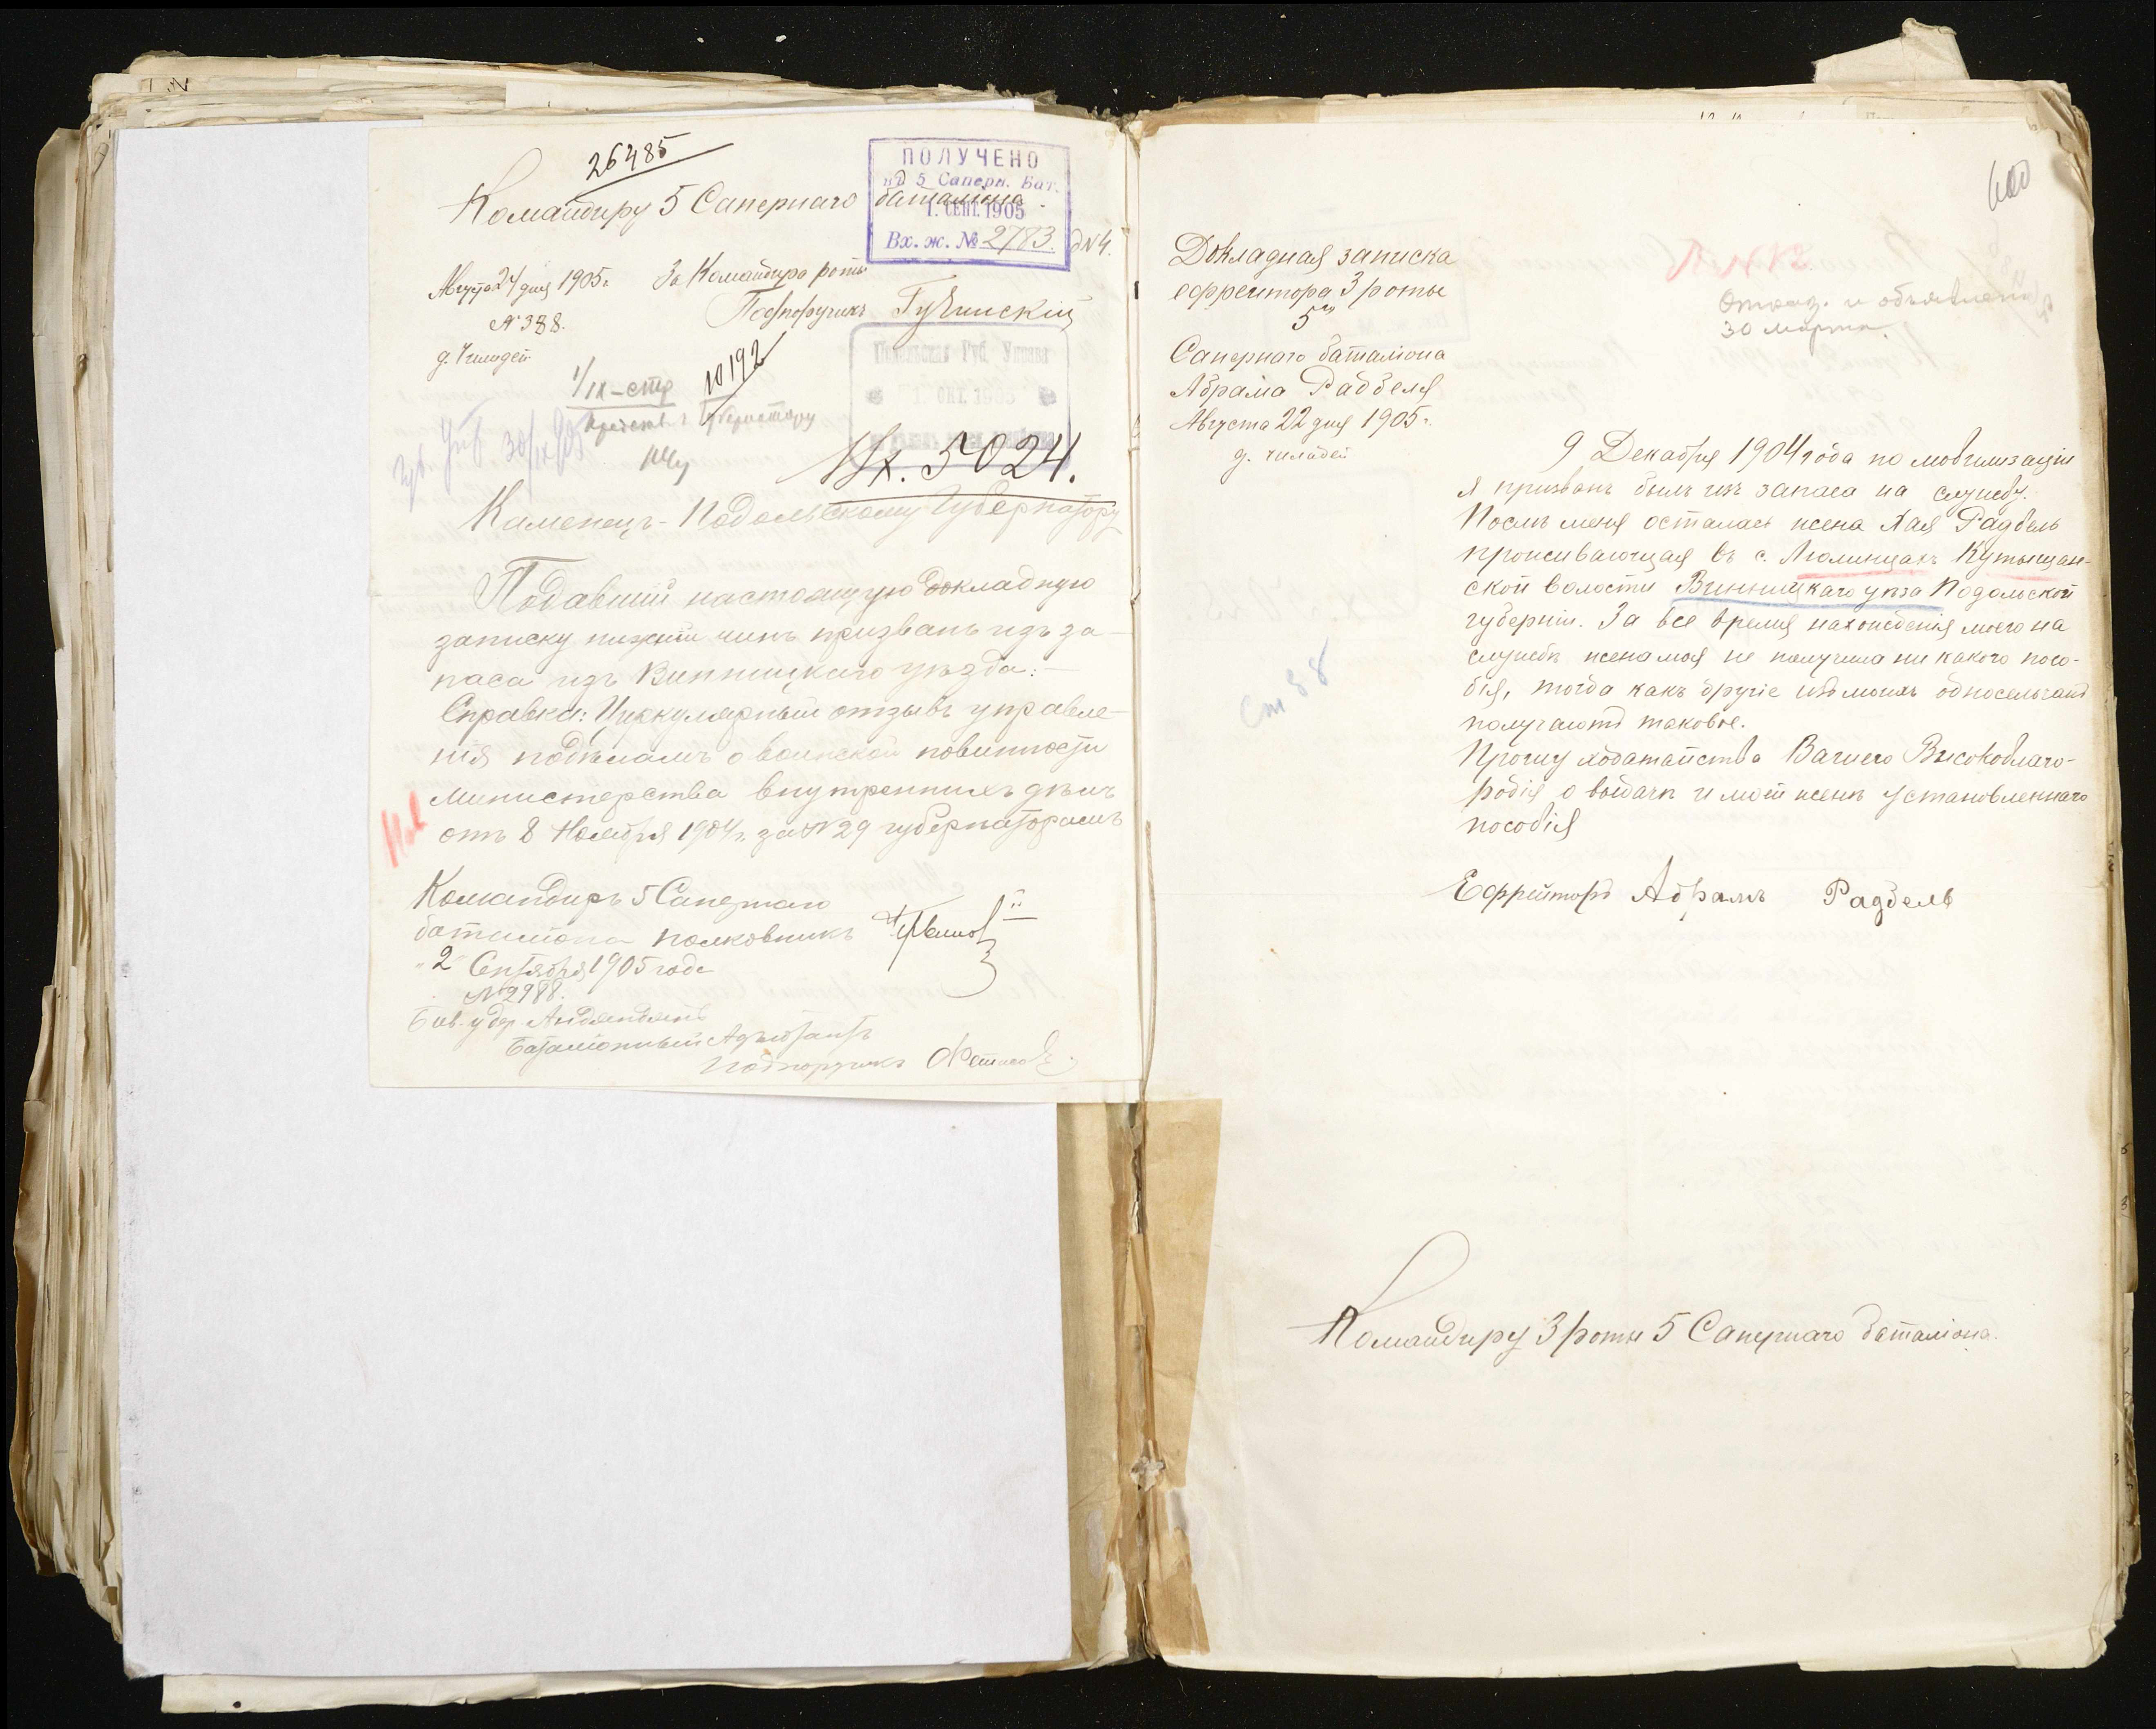 26485
Командиру 5 Сапернаго баталіона
ПОЛУЧЕНО
въ 5 Саперн. Бат.
1. СЕНТ. 1905
Вх. ж. № 2783.
Августа 24 дня 1905 г. За Командира роты
Подпоручикъ
№ 388.
1/IX
10192
Губернатору
Подольская Губ. Управа
1. ОКТ. 1905
Вх. 5024.
Каменецъ-Подольскому Губернатору
Подавшій настоящую докладную
записку нижній чинъ призванъ изъ за-
паса изъ Винницкаго уѣзда.
Справка: Циркулярный отзывъ управле-
нія по дѣламъ о воинской повинности
Министерства внутреннихъ дѣлъ
отъ 8 Ноября 1904 г. за № 29 губернаторамъ
Командиръ 5 Сапернаго
баталіона полковникъ
"2" Сентября 1905 года
№ 2988.
Баталіонный Адъютантъ
Подпоручикъ
600
Докладная записка
ефрейтора 3 роты
5го
Сапернаго баталіона
Абрама Радбеля
Августа 22 дня 1905 г.
и объявлено
30 марта.
9 Декабря 1904 года по мобилизаціи
я призванъ былъ изъ запаса на службу.
Послѣ меня осталась жена Хая Радбель
проживающая въ с. Люлинцахъ Кутыщан-
ской волости Винницкаго уѣзда Подольской
губерніи. За все время нахожденія моего на
службѣ жена моя не получила ни какого посо-
бія, тогда какъ другіе изъ моихъ односельчанъ
получаютъ таковое.
Прошу ходатайства Вашего Высокоблаго-
родія о выдачѣ и моей женѣ установленнаго
пособія
Ефрейторъ Абрамъ Радбель
Командиру 3 роты 5 Сапернаго баталіона.